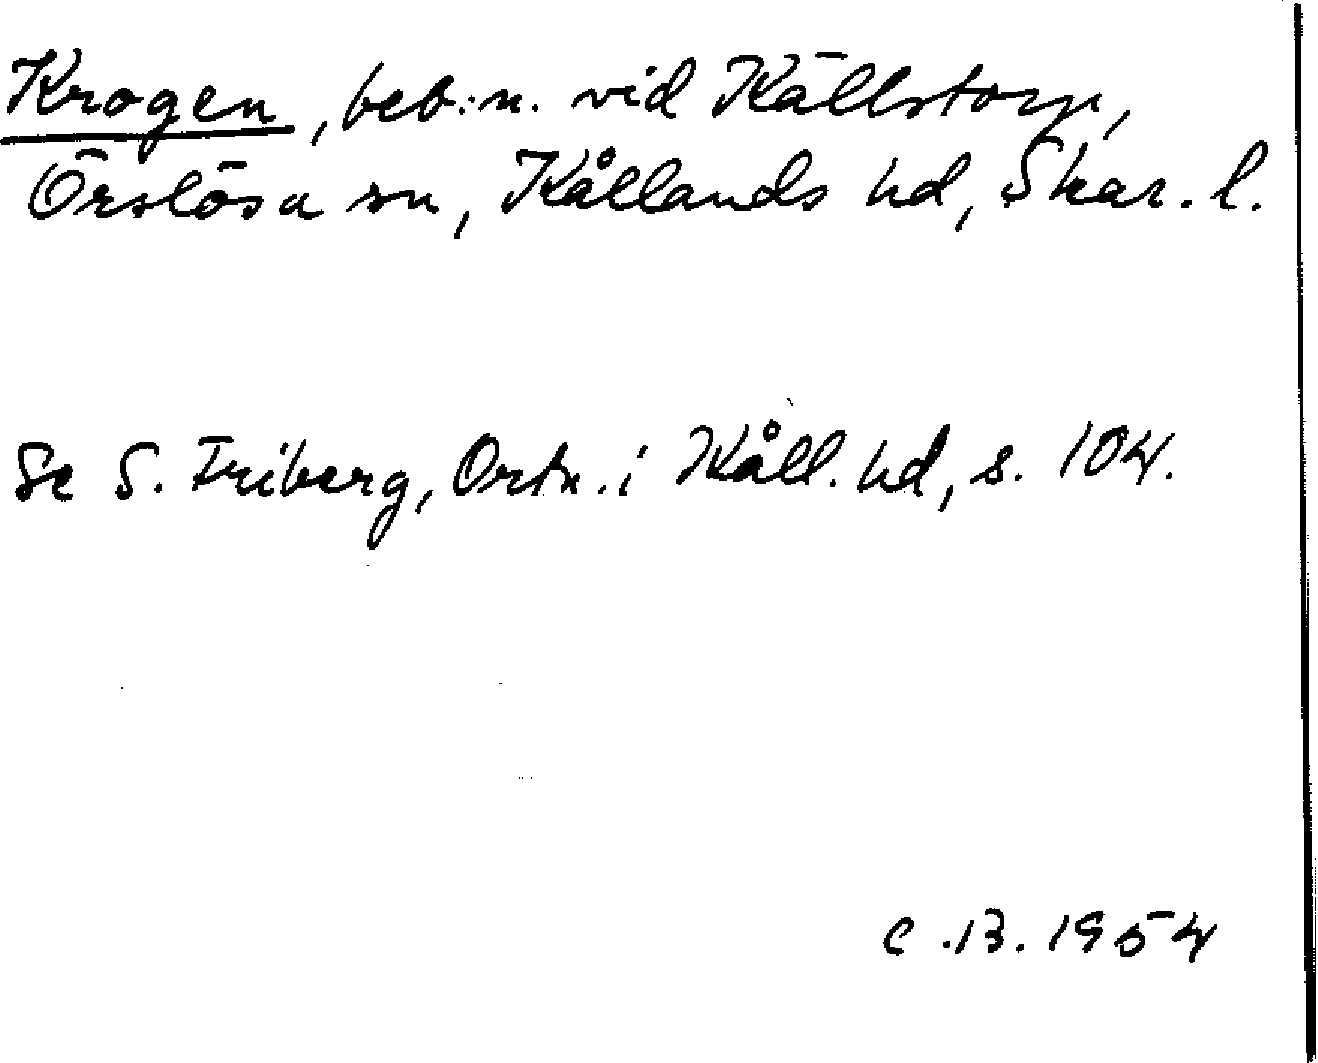 Krogen, beb.n. vid Källstorp,
Örslösa sn, Kållands hd, Skar. l.
Se S. Friberg, Ortn. i Kåll. hd, s. 104.
C.B. 1954